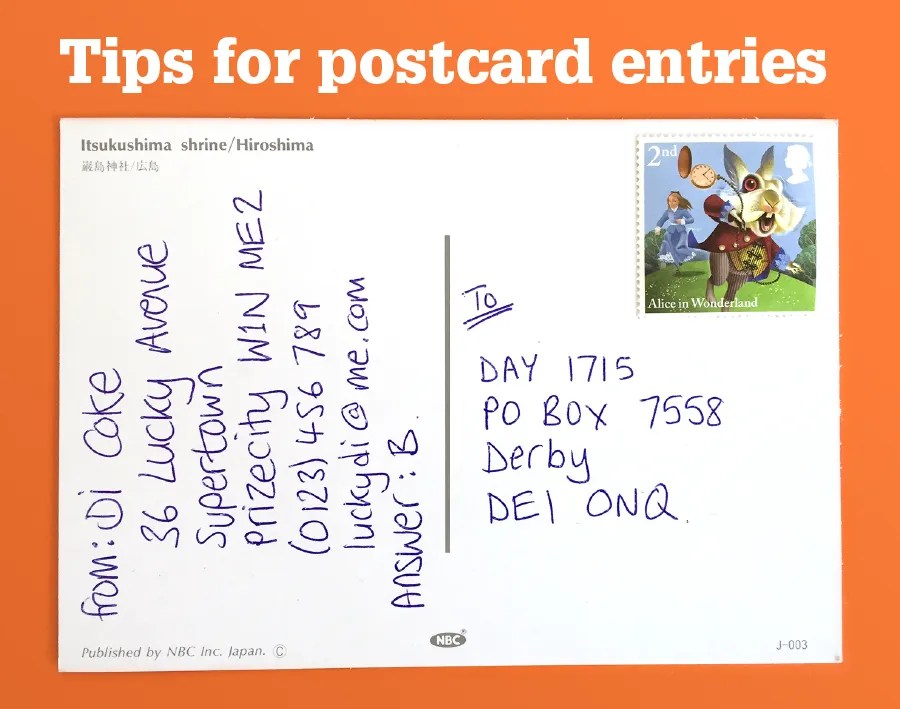 Tips for postcard entries
Itsukushima shrine/Hiroshima
嚴島神社/広島
2nd
Alice in Wonderland
from: Di Coke
36 Lucky Avenue
Supertown
Prizecity W1N ME2
(0123) 456 789
luckydi@me.com
Answer: B.
To
DAY 1715
PO BOX 7558
Derby
DE1 0NQ.
Published by NBC Inc. Japan. ©
NBC®
J-003